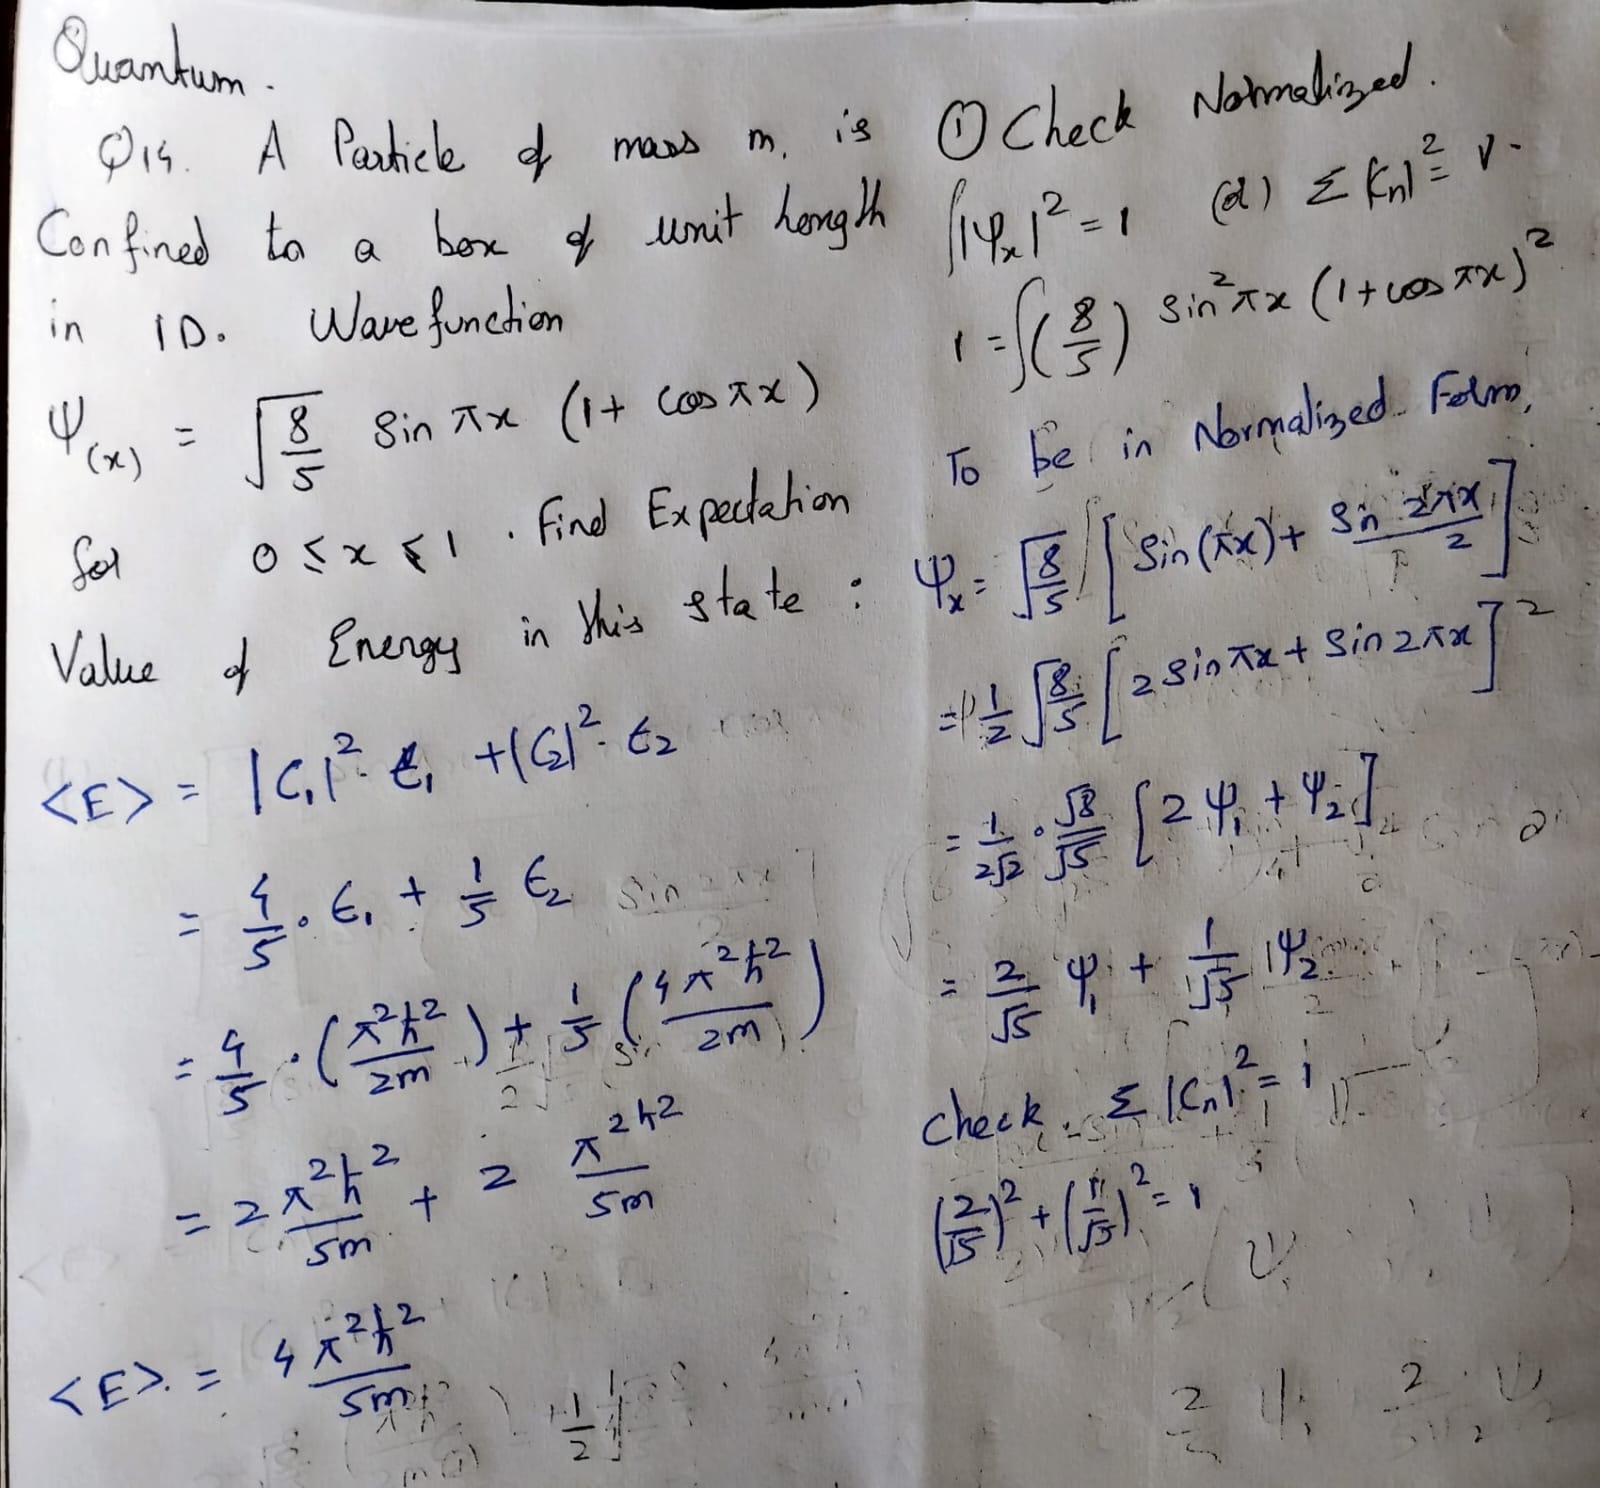 Quantum.
Q14. A Particle of mass m, is
Confined to a box of unit length
in 1D. Wave function
Ψ(x) = √(8/5) Sin πx (1 + Cos πx)
for 0 ≤ x ≤ 1. Find Expectation
Value of Energy in this state :
<E> = |C₁|². E₁ + |C₂|². E₂
= 4/5 . E₁ + 1/5 E₂
= 4/5 . (π²ħ²/2m) + 1/5 (4π²ħ²/2m)
= 2π²ħ²/5m + 2 π²ħ²/5m
<E>. = 4π²ħ²/5m
① Check Normalized.
∫|Ψx|² = 1 (or) Σ|Cn|² = 1.
1 = ∫(8/5) Sin²πx (1 + cos πx)²
To be in Normalized Form,
Ψx = √(8/5) [Sin(πx) + Sin 2πx/2]
= 1/2 √(8/5) [2 Sin πx + Sin 2πx]²
= 1/2√2 . √8/√5 [2Ψ₁ + Ψ₂]
= 2/√5 Ψ₁ + 1/√5 Ψ₂
Check. Σ|Cn|² = 1
(2/√5)² + (1/√5)² = 1